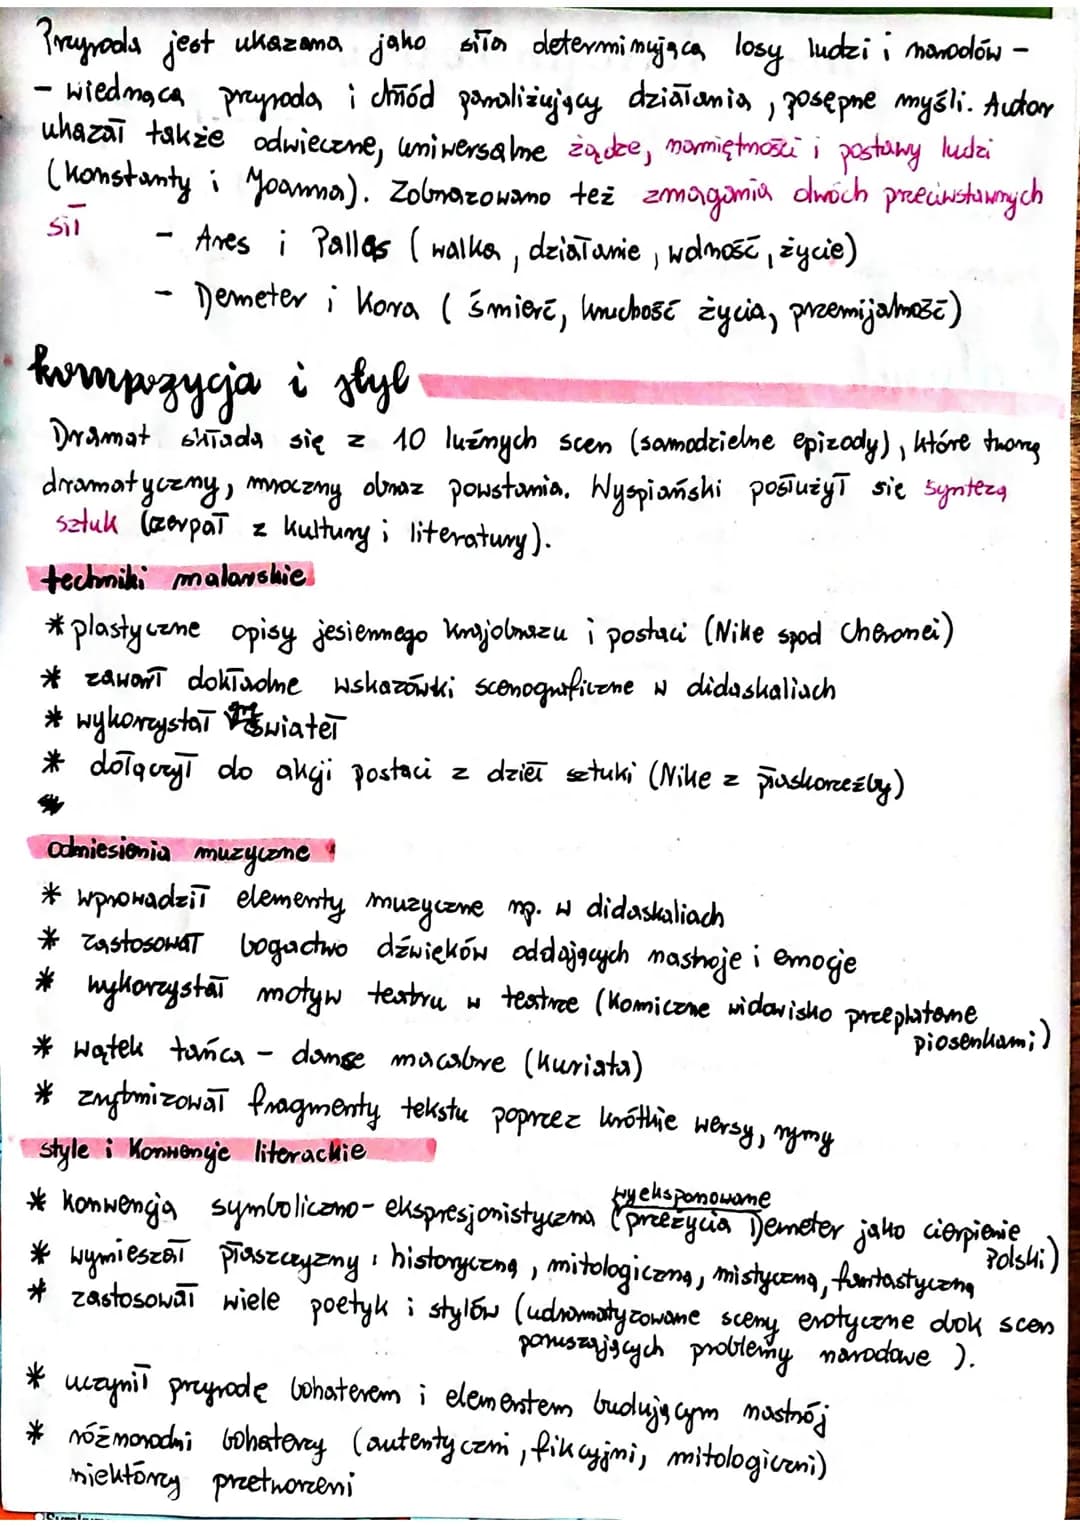 Przyroda jest ukazana jako siła determinująca losy ludzi i narodów -
- więdnąca przyroda i chłód paraliżujący działania, posępne myśli. Autor
ukazał także odwieczne, uniwersalne żądze, namiętności i postawy ludzi
(Konstanty i Joanna). Zobrazowano też zmagania dwóch przeciwstawnych
sił
- Ares i Pallas (walka, działanie, wolność, życie)
- Demeter i Kora (śmierć, kruchość życia, przemijalność)
kompozycja i styl
Dramat składa się z 10 luźnych scen (samodzielne epizody), które tworzą
dramatyczny, mroczny obraz powstania. Wyspiański posłużył się syntezą
sztuk (czerpał z kultury i literatury).
techniki malarskie
* plastyczne opisy jesiennego krajobrazu i postaci (Nike spod Cheronei)
* zawarł dokładne wskazówki scenograficzne w didaskaliach
* wykorzystał świateł
* dołączył do akcji postaci z dzieł sztuki (Nike z płaskorzeźby)
odniesienia muzyczne
* wprowadził elementy muzyczne np. w didaskaliach
* zastosował bogactwo dźwięków oddających nastroje i emocje
* wykorzystał motyw teatru w teatrze (komiczne widowisko przeplatane
piosenkami)
* wątek tańca - danse macabre (Kuriata)
* zrytmizował fragmenty tekstu poprzez krótkie wersy, rymy
style i konwencje literackie
wyeksponowane
* konwencja symboliczno-ekspresjonistyczna (przeżycia Demeter jako cierpienie
Polski)
* wymieszał płaszczyzny: historyczną, mitologiczną, mistyczną, fantastyczną
* zastosował wiele poetyk i stylów (udramatyzowane sceny erotyczne obok scen
poruszających problemy narodowe).
* uczynił przyrodę bohaterem i elementem budującym nastrój
* różnorodni bohaterzy (autentyczni, fikcyjni, mitologiczni)
niektórzy przetworzeni